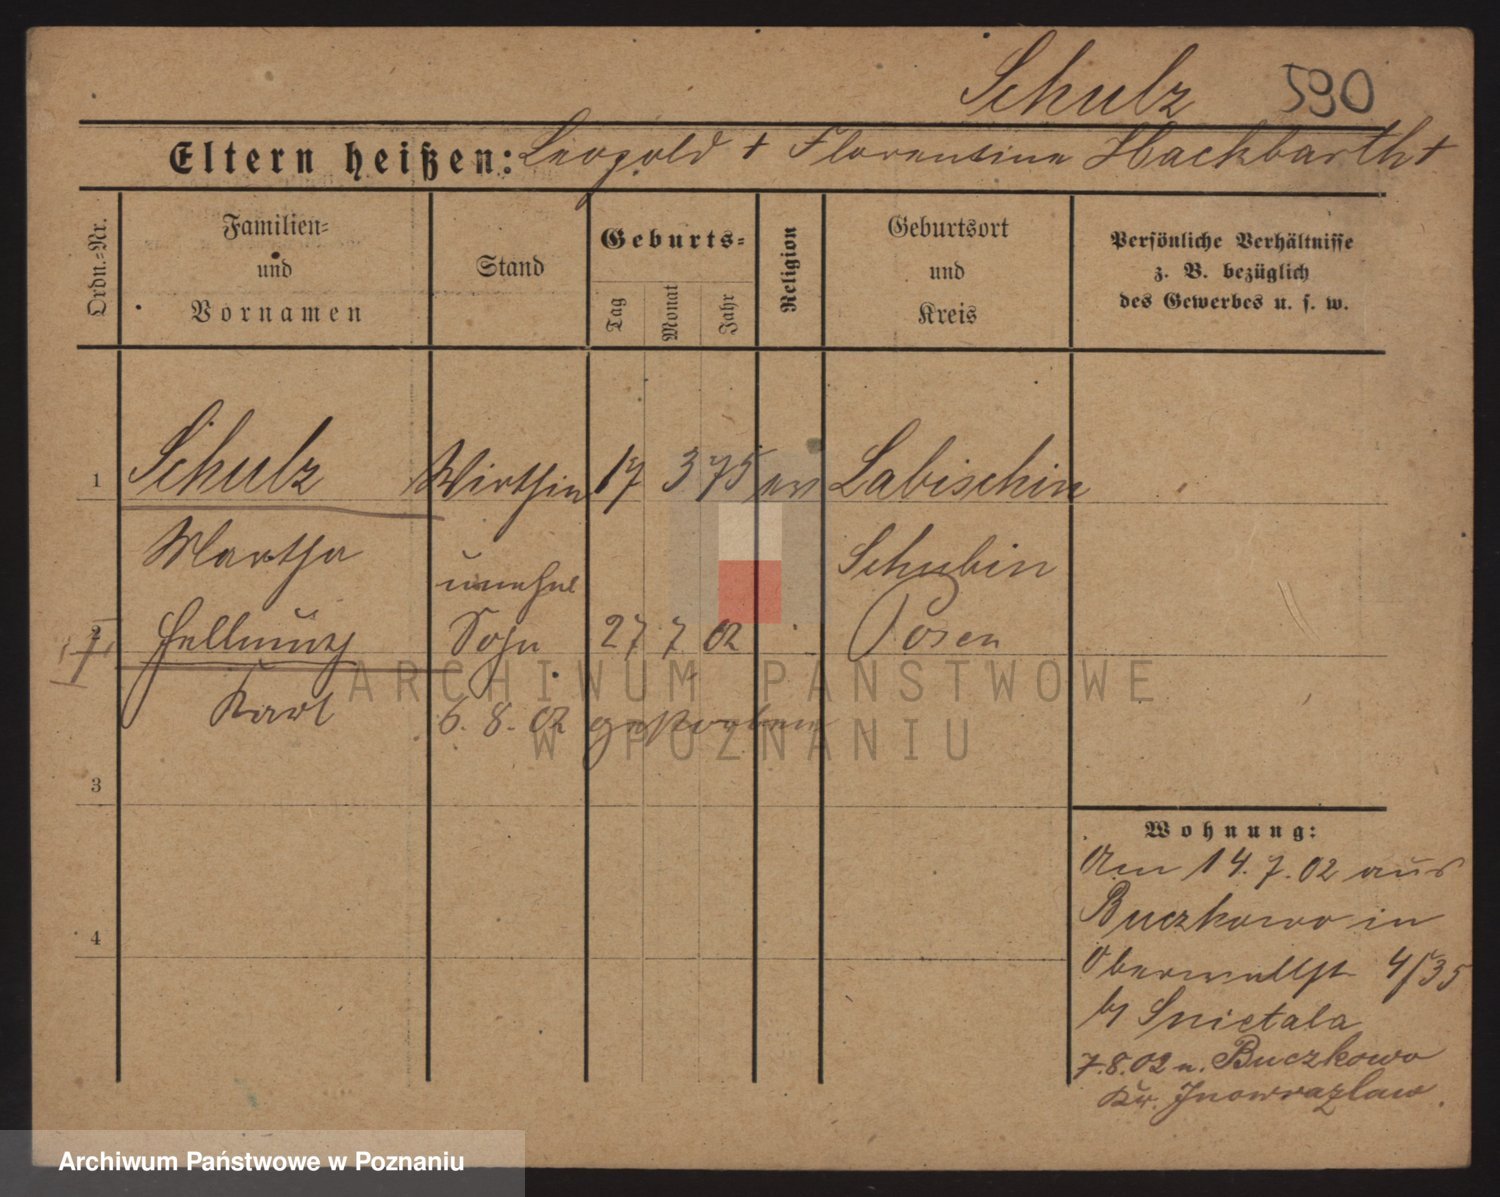 Schulz 590
Eltern heißen: Leopold + Florentine Hackbarth +
Ordn.-Nr.
Familien-
und
Vornamen
Stand
Geburts-
Tag
Monat
Jahr
Religion
Geburtsort
und
Kreis
Persönliche Verhältnisse
z. B. bezüglich
des Gewerbes u. s. w.
1 Schulz Wirthin 17 3 75 ev Labischin
Martha Schubin
unehel
2 Hellmuth Sohn 27 7 02 Posen
Karl 6. 8. 02 gestorben
3
4
Wohnung:
Am 14. 7. 02 aus
Buczkowo in
Oberwallst 4/35
b/ Smietala
7.8.02 n. Buczkowo
Kr. Inowrazlaw.
ARCHIWUM PAŃSTWOWE
W POZNANIU
Archiwum Państwowe w Poznaniu